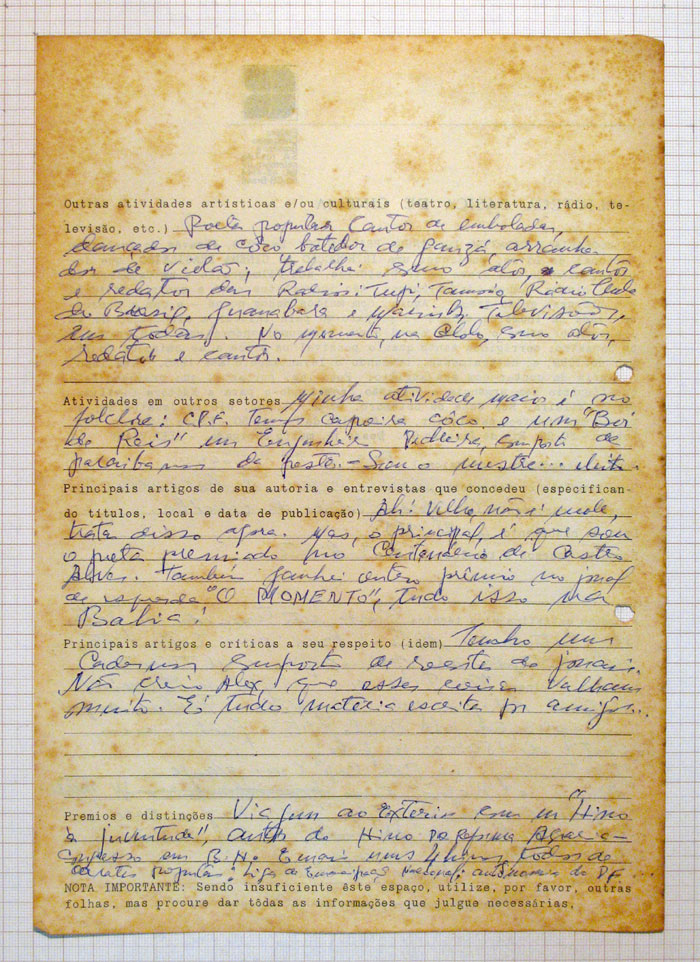 Outras atividades artísticas e/ou culturais (teatro, literatura, rádio, te-
levisão, etc.) Poeta popular Cantor de emboladas,
dançador de côco batedor de ganzá, arranha-
dor de violão; trabalhei como ator, cantor
e redator das Radios: Tupi, Tamoio, Rádio Clube
do Brasil, Guanabara e Mairink, Televisões,
em todas. No momento, na Globo, como ator,
redator e cantor.
Atividades em outros setores Minha atividade maior é no
folclore: Temos capoeira côco, e um "Boi
de Reis" em Engenheiro Pedreira, composto de
paraibanos da peste. - Sou o mestre... eleito.
Principais artigos de sua autoria e entrevistas que concedeu (especifican-
do títulos, local e data de publicação) Ah! Velho, não é mole,
tratar disso agora. Mas, o principal, é que sou
o poeta premiado no Centenário de Castro
Alves. Também ganhei outro prêmio no jornal
de esquerda "O MOMENTO", tudo isso na
Bahia!
Principais artigos e críticas a seu respeito (idem) Tenho um
caderno de recortes de jornais.
Não creio Alex, que essas coisas valham
muito. É tudo matéria escrita por amigos...
Premios e distinções Viagem ao Exterior com um "Hino
à juventude", autor do Hino da Reforma Agrária -
Congresso em B.H. E mais uns 4 hinos, todos de
populares: Liga de Emancipação Nacional; autonomia do DF...
NOTA IMPORTANTE: Sendo insuficiente êste espaço, utilize, por favor, outras
folhas, mas procure dar tôdas as informações que julgue necessárias.